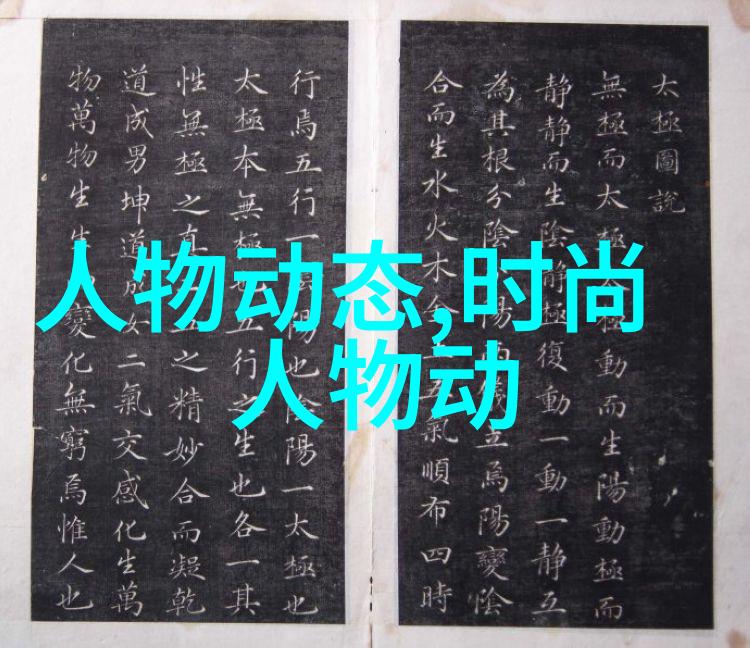 人物动态,时尚
人物动
太極圖說
無極而太極太極動而生陽動極而
静静而生陰静極復動一動一静互
為其根分陰陽兩儀立焉陽變陰
合而生水火木金五氣順布四時
行焉五行一陰陽也陰陽一太極也
太極本無極也五行之生也各一其
性無極之真五之精妙合而凝乾
道成男坤道成女二氣交感化生萬
物萬物生生變化無窮焉惟人也